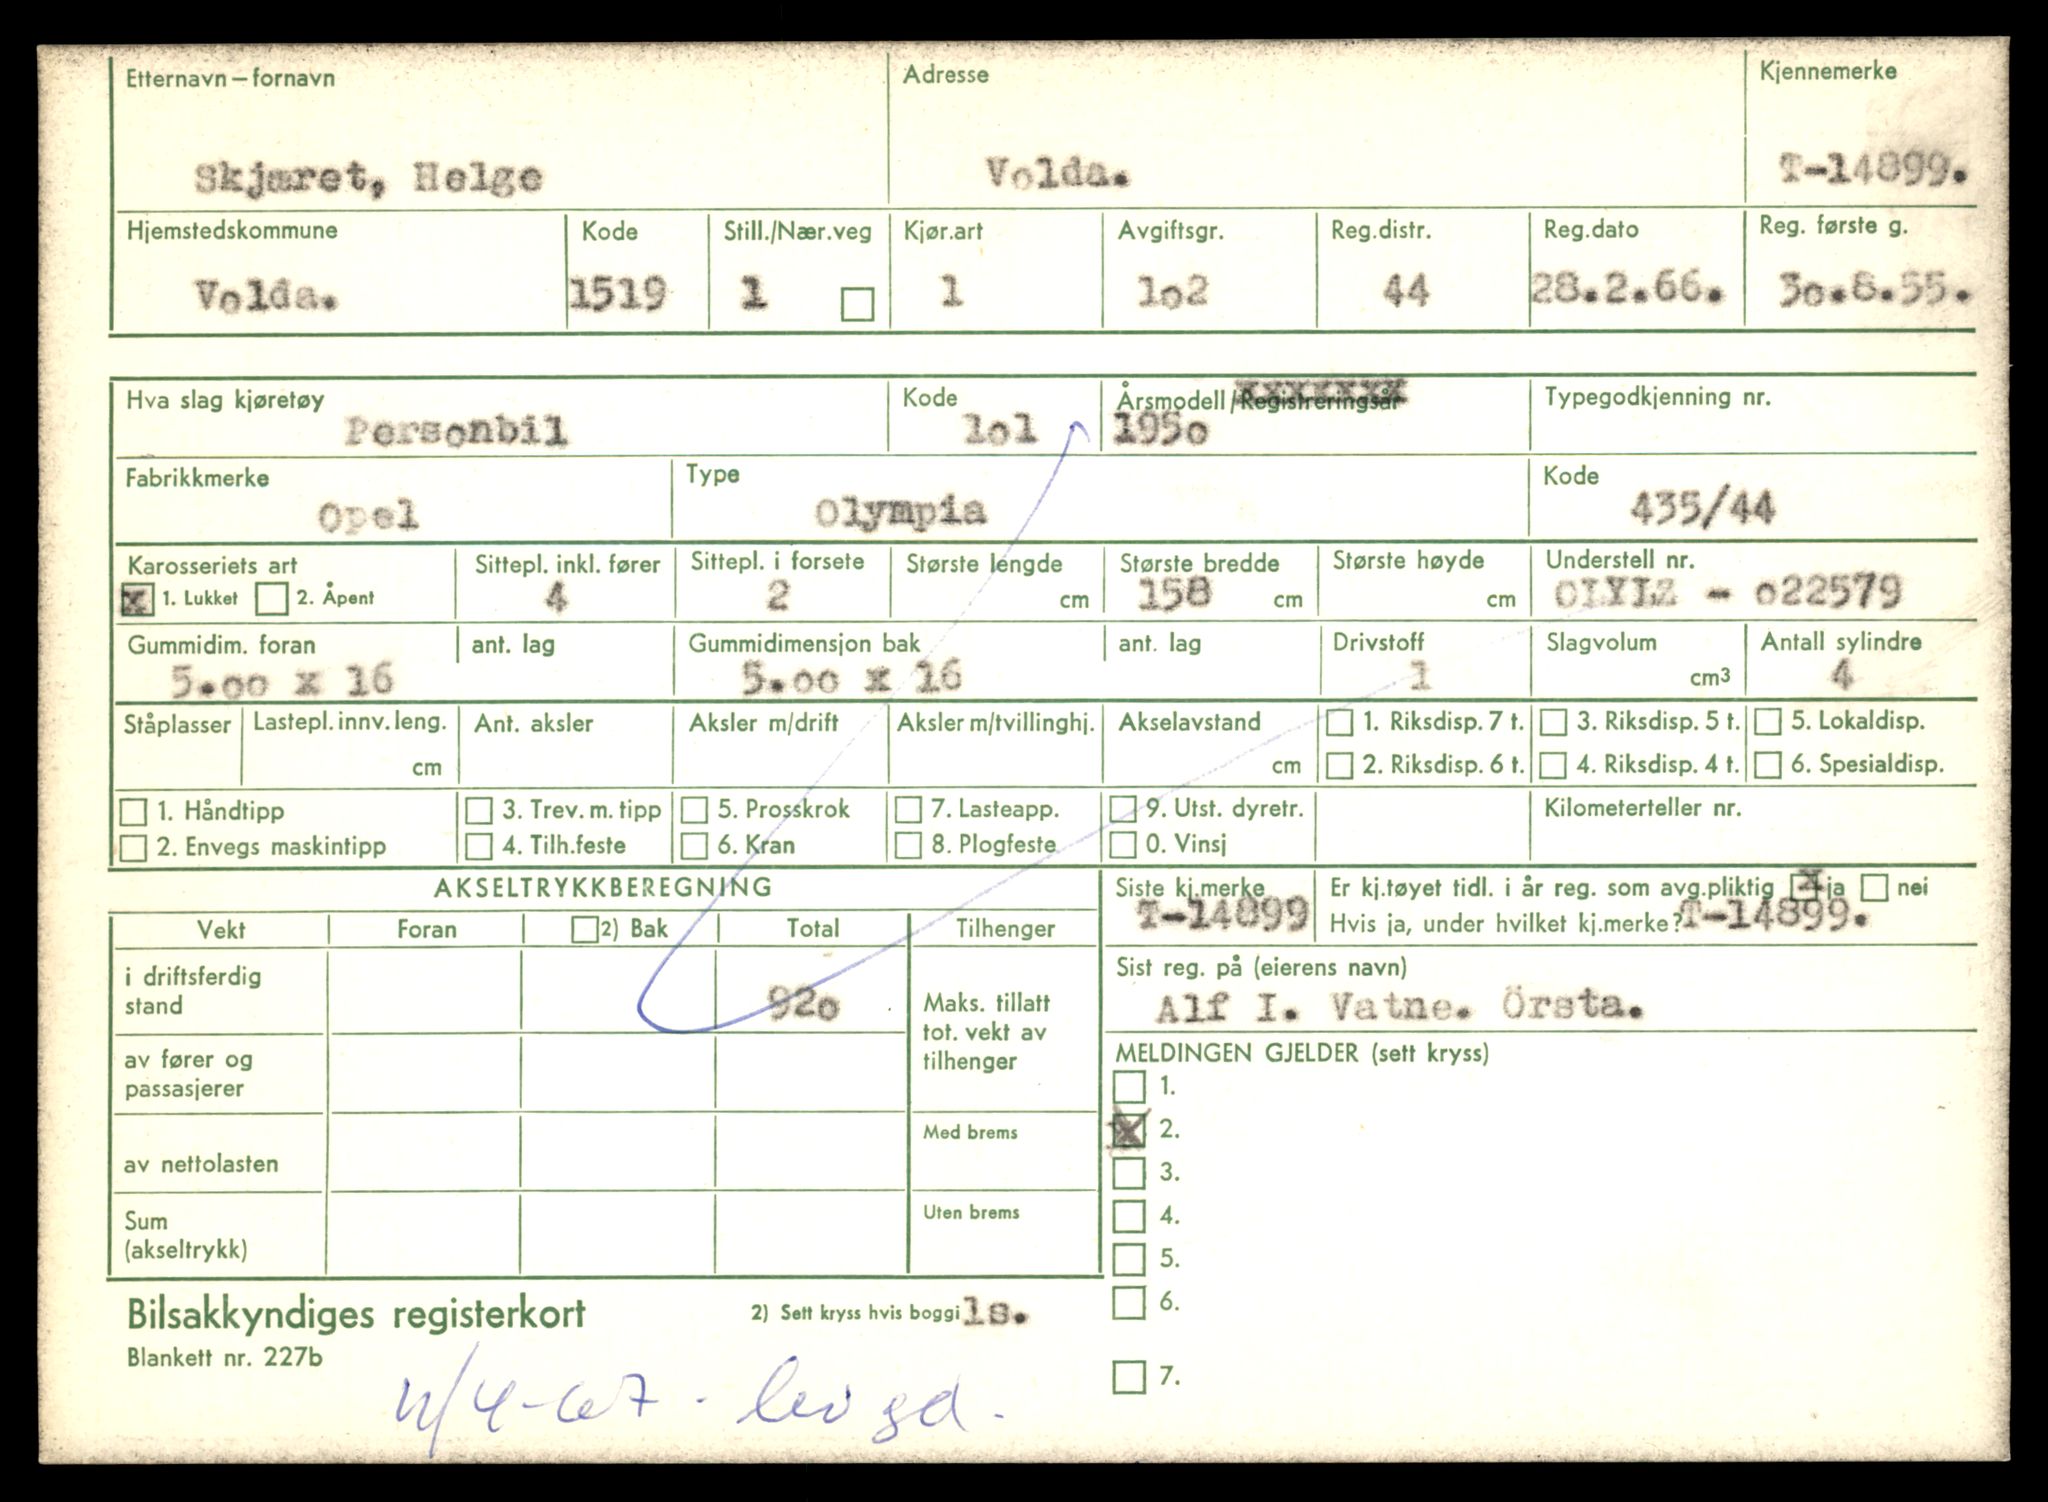 Etternavn – fornavn Adresse Kjennemerke
Skjæret, Helge Volda. T-14899.
Hjemstedskommune Kode Still./Nær.veg Kjør.art Avgiftsgr. Reg.distr. Reg.dato Reg. første g.
Volda. 1519 1 1 1o2 44 28.2.66. 3o.8.55.
Hva slag kjøretøy Kode Årsmodell/Registreringsår Typegodkjenning nr.
Personbil 1o1 195o
Fabrikkmerke Type Kode
Opel Olympia 435/44
Karosseriets art Sittepl. inkl. fører Sittepl. i forsete Største lengde Største bredde Største høyde Understell nr.
x 1. Lukket 2. Åpent 4 2 cm 158 cm cm OLYLZ - o22579
Gummidim. foran ant. lag Gummidimensjon bak ant. lag Drivstoff Slagvolum Antall sylindre
5.oo x 16 5.oo x 16 1 cm3 4
Ståplasser Lastepl. innv. leng. Ant. aksler Aksler m/drift Aksler m/tvillinghj. Akselavstand 1. Riksdisp. 7 t. 3. Riksdisp. 5 t. 5. Lokaldisp.
cm cm 2. Riksdisp. 6 t. 4. Riksdisp. 4 t. 6. Spesialdisp.
1. Håndtipp 3. Trev. m. tipp 5. Prosskrok 7. Lasteapp. 9. Utst. dyretr. Kilometerteller nr.
2. Envegs maskintipp 4. Tilh.feste 6. Kran 8. Plogfeste 0. Vinsj
AKSELTRYKKBEREGNING Siste kj.merke Er kj.tøyet tidl. i år reg. som avg.pliktig x ja nei
T-14899 Hvis ja, under hvilket kj.merke? T-14899.
Vekt Foran 2) Bak Total Tilhenger
Sist reg. på (eierens navn)
Alf I. Vatne. Örsta.
i driftsferdig
stand 92o
Maks. tillatt
tot. vekt av
tilhenger
MELDINGEN GJELDER (sett kryss)
av fører og
passasjerer
1.
x 2.
Med brems
av nettolasten
3.
Uten brems
4.
Sum
(akseltrykk)
5.
6.
Bilsakkyndiges registerkort 2) Sett kryss hvis boggi ls.
Blankett nr. 227b
7.